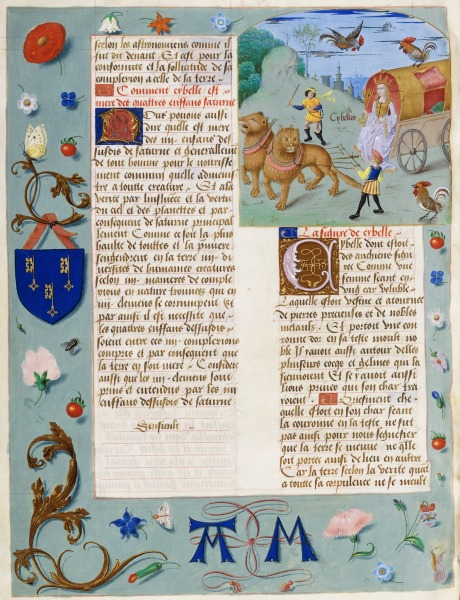 selon les astronomiens comme il
fut dit devant Et est pour la
conformite et la sollicitude de sa
complexion a celle de la terre
Comment cybelle est
mere des quattres enffans saturne
Nous pouons aussi
dire quelle est mere
des iiii enfans de
susdis de saturne et generallement
de tout homme pour le nourrisse
ment commun quelle admenis
tre a toute creature Et a la
verite par linfluence et la vertu
du ciel et des planettes et par
consequent de saturne principal
lement Comme ce soit la plus
haulte de touttes et la pmiere
seingneurent en la terre iiii di
uersites de humaines creatures
selon iiii manieres de comple
xions en nature trouuees que en
iiii elemens se corrumpent et
par ainsi il est necessite que
les quattres enffans dessusdis
soient entre ces iiii complexions
compris et par consequent que
la terre en soit mere Considere
aussi que les iiii elemens sont
prins et entendus par les iiii
enffans dessusdis de saturne
Sensuilt
Cybelles
La figure de cybelle
Cybelle dont estoit
des anchiens figu
ree Comme vne
femme seant en
vng car
Laquelle estoit vestue et atournee
de pierres precieuses et de nobles
metaulx Et portoit vne cou
ronne dor en sa teste moult no
ble Et auoit autour delle
pluiseurs cocqz et gelines qui la
sieuuoient Et se y auoit aussi
lions prives qui son char tra
yoient Briefment che
quelle estoit en son char seant
la couronne en la teste ne fut
pas aussi pour nous segnefier
que la terre se meuue ne qlle
soit portee aussi de lieu en autre
Car la terre selon la verite quat
a toute sa corpulence ne se meult
A M